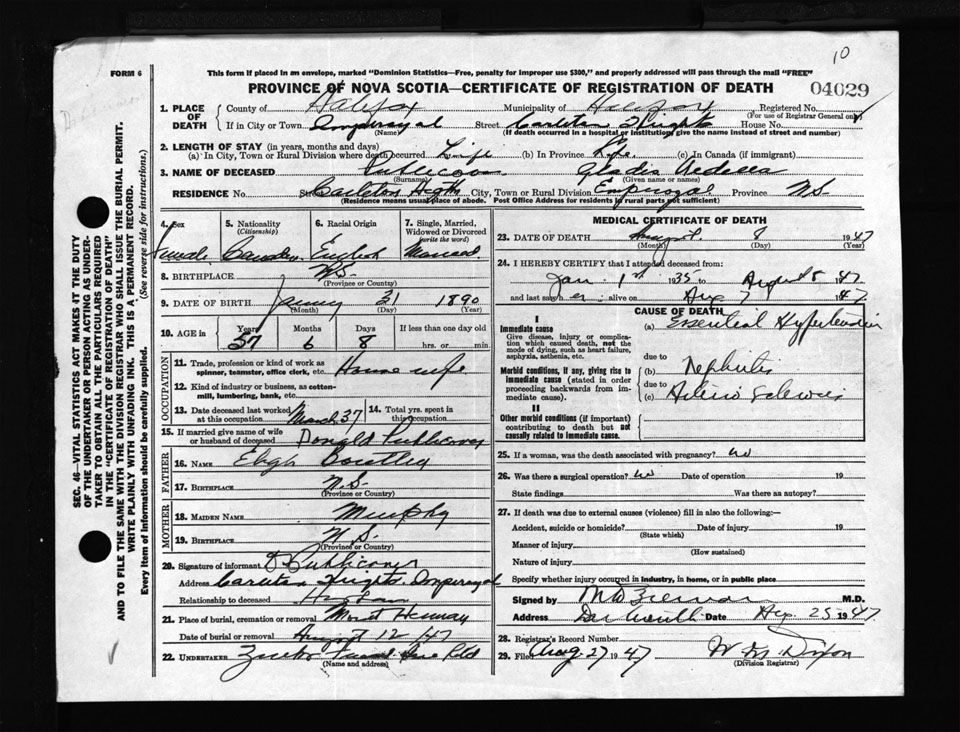 10
FORM 6
This form if placed in an envelope, marked "Dominion Statistics—Free, penalty for improper use $300," and properly addressed will pass through the mail "FREE"
PROVINCE OF NOVA SCOTIA—CERTIFICATE OF REGISTRATION OF DEATH
04029
1. PLACE OF DEATH
County of Halifax Municipality of Halifax Registered No.
(For use of Registrar General only)
If in City or Town Imperoyal Street Carleton Heights House No.
(Name) (If death occurred in a hospital or institution, give the name instead of street and number)
2. LENGTH OF STAY (in years, months and days)
(a) In City, Town or Rural Division where death occurred Life (b) In Province Life (c) In Canada (if immigrant)
3. NAME OF DECEASED Publicover Gladis
(Surname) (Given name or names)
RESIDENCE No. Street Carleton Hights City, Town or Rural Division Emperoyal Province N.S
(Residence means usual place of abode. Post Office Address for residents in rural parts not sufficient)
4. Sex Female
5. Nationality (Citizenship) Canadian
6. Racial Origin English
7. Single, Married, Widowed or Divorced (write the word) Married
8. BIRTHPLACE N.S.
(Province or Country)
9. DATE OF BIRTH 31 1890
(Month) (Day) (Year)
10. AGE in Years Months Days If less than one day old
57 6 8 hrs. or min.
OCCUPATION
11. Trade, profession or kind of work as spinner, teamster, office clerk, etc. House wife
12. Kind of industry or business, as cotton-mill, lumbering, bank, etc.
13. Date deceased last worked at this occupation March 37
14. Total yrs. spent in this occupation
15. If married give name of wife or husband of deceased Donald Publicover
FATHER
16. NAME
17. BIRTHPLACE N.S.
(Province or Country)
MOTHER
18. MAIDEN NAME Murphy
19. BIRTHPLACE N S.
(Province or Country)
20. Signature of informant D Publicover
Address Carleton Heights Imperoyal
Relationship to deceased Husban
21. Place of burial, cremation or removal Mount Hermon
Date of burial or removal August 12 /47
22. UNDERTAKER
(Name and address)
MEDICAL CERTIFICATE OF DEATH
23. DATE OF DEATH August 8 1947
(Month) (Day) (Year)
24. I HEREBY CERTIFY that I attended deceased from:
Jan. 1st 1935 to August 8 1947
and last saw her alive on Aug 7 1947
CAUSE OF DEATH
I
Immediate cause
Give disease, injury or complication which caused death, not the mode of dying, such as heart failure, asphyxia, asthenia, etc.
(a) Essential Hypertension
due to
Morbid conditions, if any, giving rise to immediate cause (stated in order proceeding backwards from immediate cause).
(b) Nephritis
due to
(c) Arterio Sclerosis
II
Other morbid conditions (if important) contributing to death but not causally related to immediate cause.
25. If a woman, was the death associated with pregnancy? no
26. Was there a surgical operation? no Date of operation 19
State findings Was there an autopsy?
27. If death was due to external causes (violence) fill in also the following:—
Accident, suicide or homicide? Date of injury 19
(State which)
Manner of injury
(How sustained)
Nature of injury
Specify whether injury occurred in industry, in home, or in public place
Signed by M.D.
Address Dartmouth Date Aug. 25 1947
28. Registrar's Record Number
29. Filed Aug 27 1947 Dixon
(Division Registrar)
SEC. 46—VITAL STATISTICS ACT MAKES IT THE DUTY
OF THE UNDERTAKER OR PERSON ACTING AS UNDERTAKER TO OBTAIN ALL THE PARTICULARS REQUIRED
IN THE "CERTIFICATE OF REGISTRATION OF DEATH"
AND TO FILE THE SAME WITH THE DIVISION REGISTRAR WHO SHALL ISSUE THE BURIAL PERMIT.
WRITE PLAINLY WITH UNFADING INK. THIS IS A PERMANENT RECORD.
Every item of information should be carefully supplied. (See reverse side for instructions.)